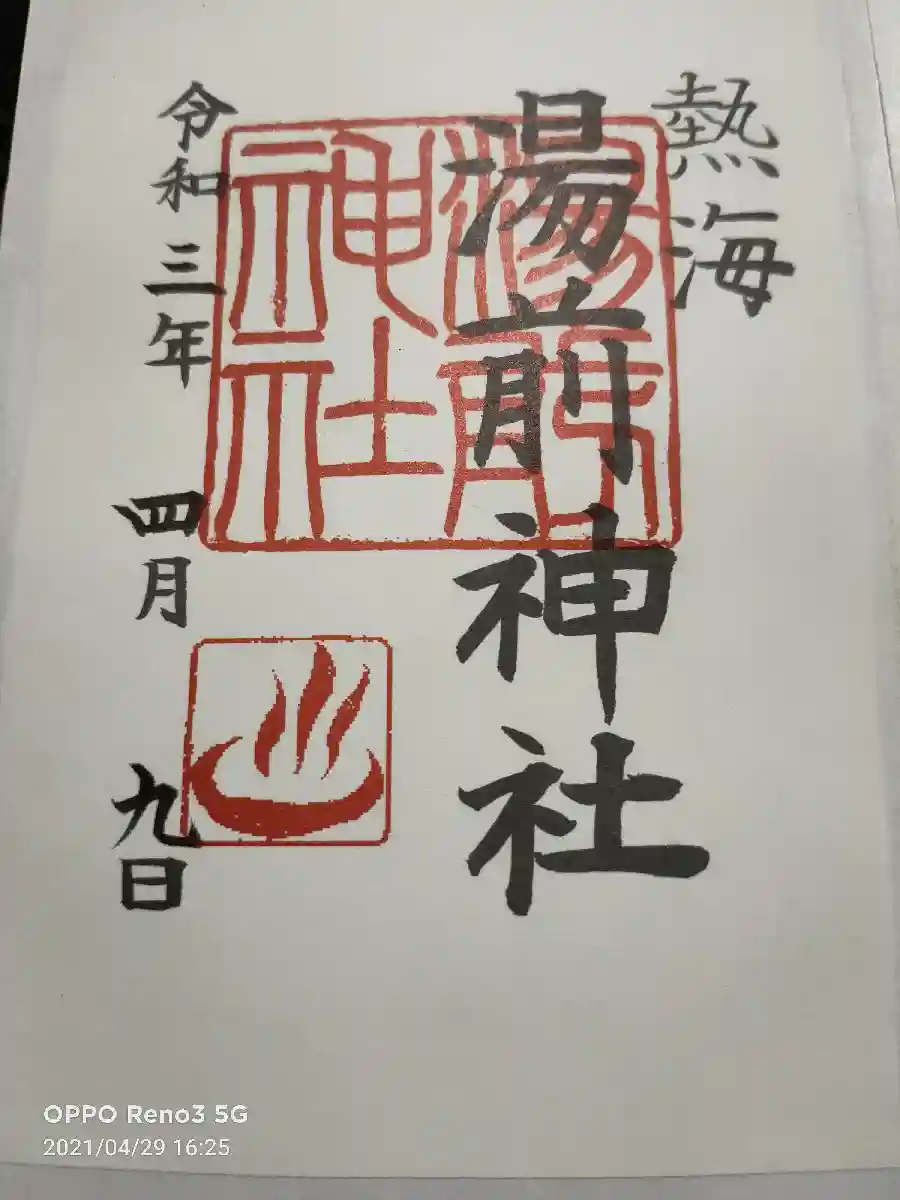 熱海
湯前神社
湯前神社
令和三年 四月 九日
OPPO Reno3 5G
2021/04/29 16:25